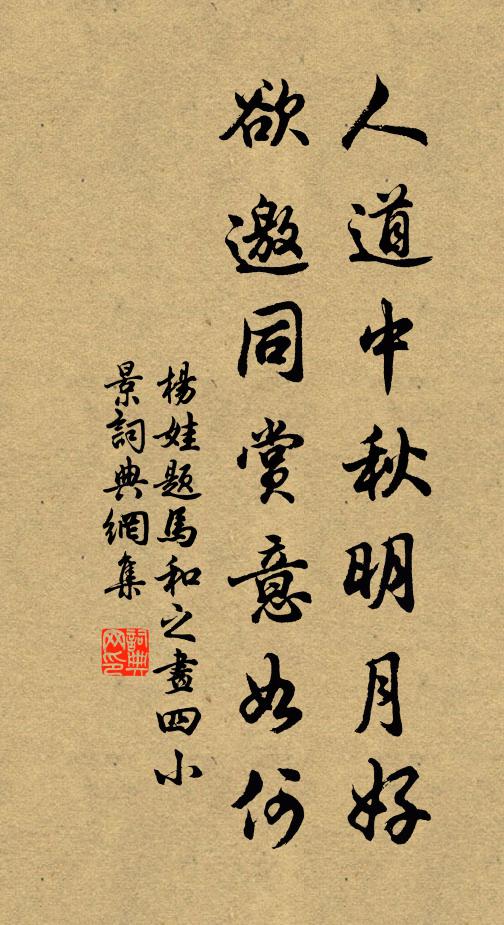 人道中秋明月好
欲邀同賞意如何
楊娃題馬和之畫四小
景詞典網集
詞典网印